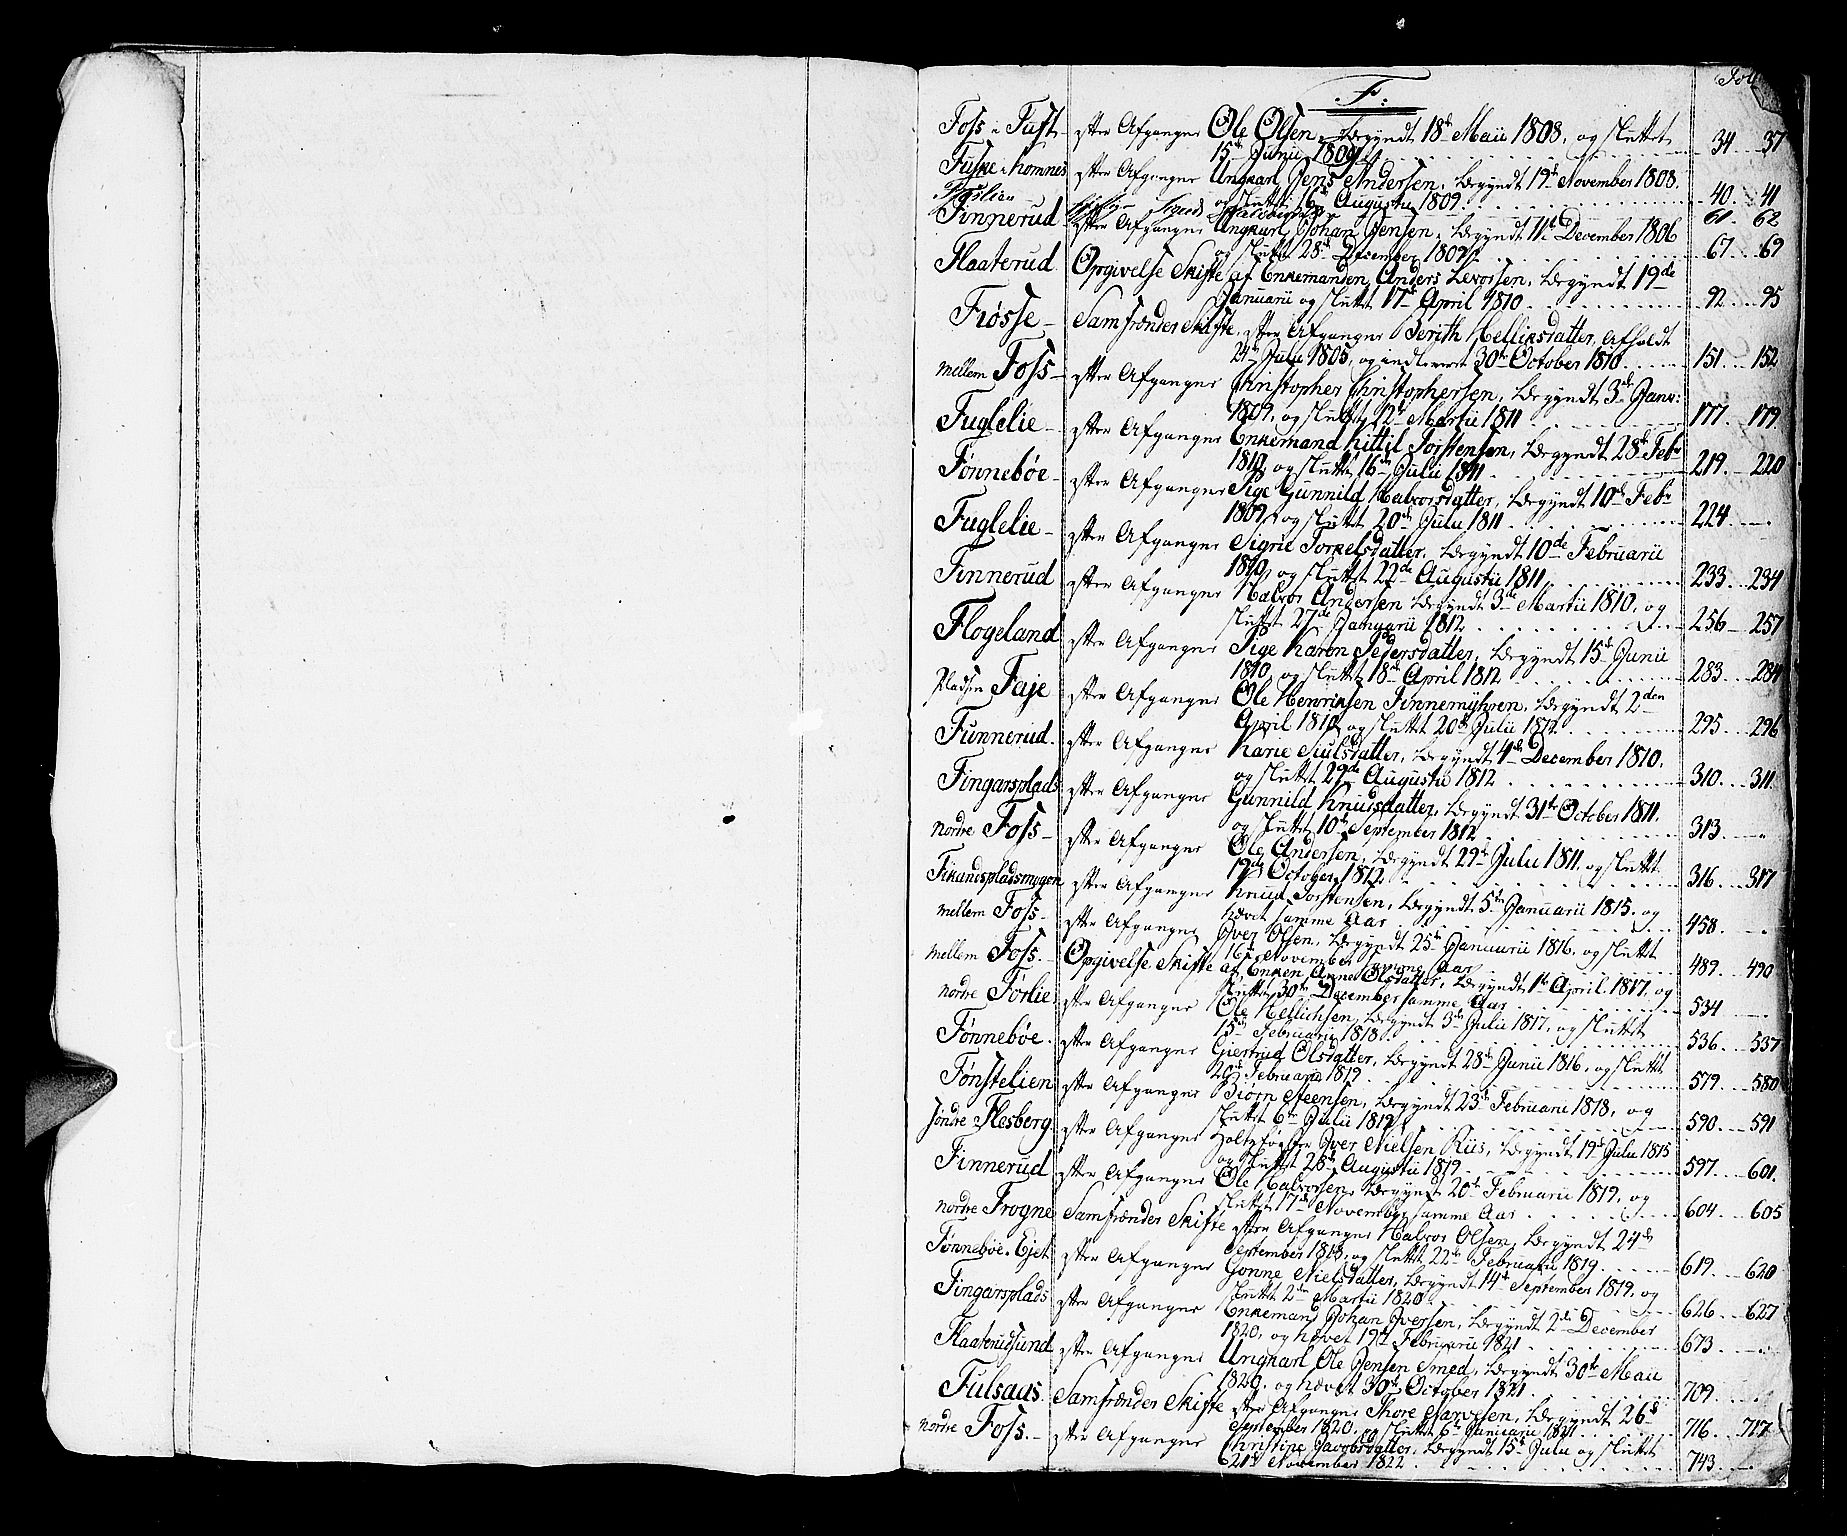 F:
Foss i Tuft efter Afgangne Ole Olsen, begyndt 18de Maii 1808, og sluttet
15de Junii 1809 34 37
Fuske i komnes efter Afgangne Ungkarl Jens Andersen, begyndt 19de November 1808.
og sluttet 16de Augustii 1809 40 41
61 62
Finnerud efter Afgangne Ungkarl Johan Jensen, begyndt 11te December 1806
og sluttet 28de December 1809 67 69
Flaaterud Opgivelse Skifte af Enkemanden Anders Levorsen, begyndt 19de
Januarii og sluttet 17de April 1810 92 95
Frøsse Samfrænder Skifte, efter Afgangne Berith Hellicsdatter, afholdt
24de Julii 1805, og indleveret 30te October 1810 151 152
mellem Foss efter Afgangne Christopher Christophersen, begyndt 3de Janu:
1809, og sluttet 12te Martii 1811 177 179
Fuglelie efter Afgangne Enkemand Kittil Torstensen, begyndt 28de Febr
1810, og sluttet 16de Julii 1811 219 220
Fønnebøe efter Afgangne Pige Gunnild Halvorsdatter, begyndt 10de Febr
1809, og sluttet 20de Julii 1811 224
Fuglelie efter Afgangne Sigrie Torkelsdatter, begyndt 10de Februarii
1810, og sluttet 22de Augustii 1811 233 234
Finnerud efter Afgangne Halvor Andersen begyndt 3de Martii 1810, og
sluttet 27de Januarii 1812 256 257
Flogeland efter Afgangne Pige Karen Pedersdatter, begyndt 15de Junii
1810, og sluttet 18de April 1812 283 284
Pladsen Faje efter Afgangne Ole Henriksen Finnemyhren, begyndt 2den
April 1812, og sluttet 20de Julii 1812 295 296
Funnerud efter Afgangne Karie Siulsdatter, begyndt 4de December 1810,
og sluttet 29de Augustii 1812 310 311
Fingarsplads efter Afgangne Gunnild Knudsdatter, begyndt 31te October 1811,
og sluttet 10de September 1812 313
nordre Foss efter Afgangne Ole Andersen, begyndt 29de Julii 1811, og sluttet
12de October 1812 316 317
efter Afgangne Knud Torstensen, begyndt 5te Januarii 1815. og
hævet samme Aar 458
mellem Foss efter Afgangne Iver Olsen, begyndt 25de Januarii 1816, og sluttet
16de November samme Aar 489 490
mellem Foss Opgivelse Skifte af Enken Anne Olsdatter, begyndt 1te April 1817, og
sluttet 30te December samme Aar 534
nordre Førlie efter Afgangne Ole Hellichsen, begyndt 3de Julii 1817, og sluttet
15de Februarii 1818 536 537
Fønnebøe efter Afgangne Giertrud Olsdatter, begyndt 28de Junii 1816, og sluttet
20de Februarii 1819 579 580
Fønstelien efter Afgangne Biørn Steensen, begyndt 23de Februarii 1818, og
sluttet 6te Julii 1819 590 591
søndre Flesberg efter Afgangne Holtzfogder Iver Nielsen Riis, begyndt 19de Julii 1815
og sluttet 28de Augustii 1819 597 601
Finnerud efter Afgangne Ole Halvorsen, begyndt 20de Februarii 1819, og
sluttet 17de November samme Aar 604 605
nordre Frogne Samfrænder Skifte efter Afgangne Halvor Olsen, begyndt 24de
September 1818, og sluttet 22de Februarii 1819 619 620
Fønnebøe Ejet efter Afgangne Gønne Nielsdatter, begyndt 14de September 1819, og
sluttet 2den Martii 1820 626 627
Fingarsplads efter Afgangne Enkemand Johan Iversen, begyndt 2de December
1820, og hævet 19de Februarii 1821 673
Flaaterudsund efter Afgangne Ungkarl Ole Jensen Smed, begyndt 30te Maii
1820. og hævet 30te October 1821 709
Fulsaas Samfrænder Skifte efter Afgangne Thore Narvesen, begyndt 26de
September 1820, og sluttet 6te Januarii 1821 716 717
nordre Foss efter Afgangne Christine Jacobsdatter, begyndt 15de Julii og sluttet
21de November 1822 743